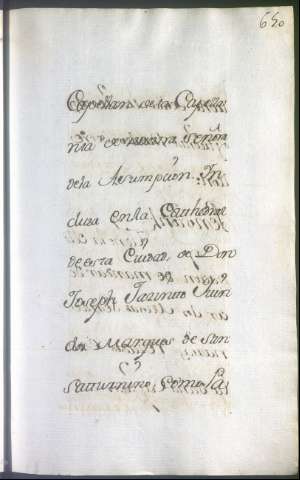 650
Capellan de la Capella
nia de nuestra Señora
de la Assumpcion, In
clusa en la Cathedral
de esta Ciudad, de Don
Joseph Jacinto
do Marques de San
Saturnino, como